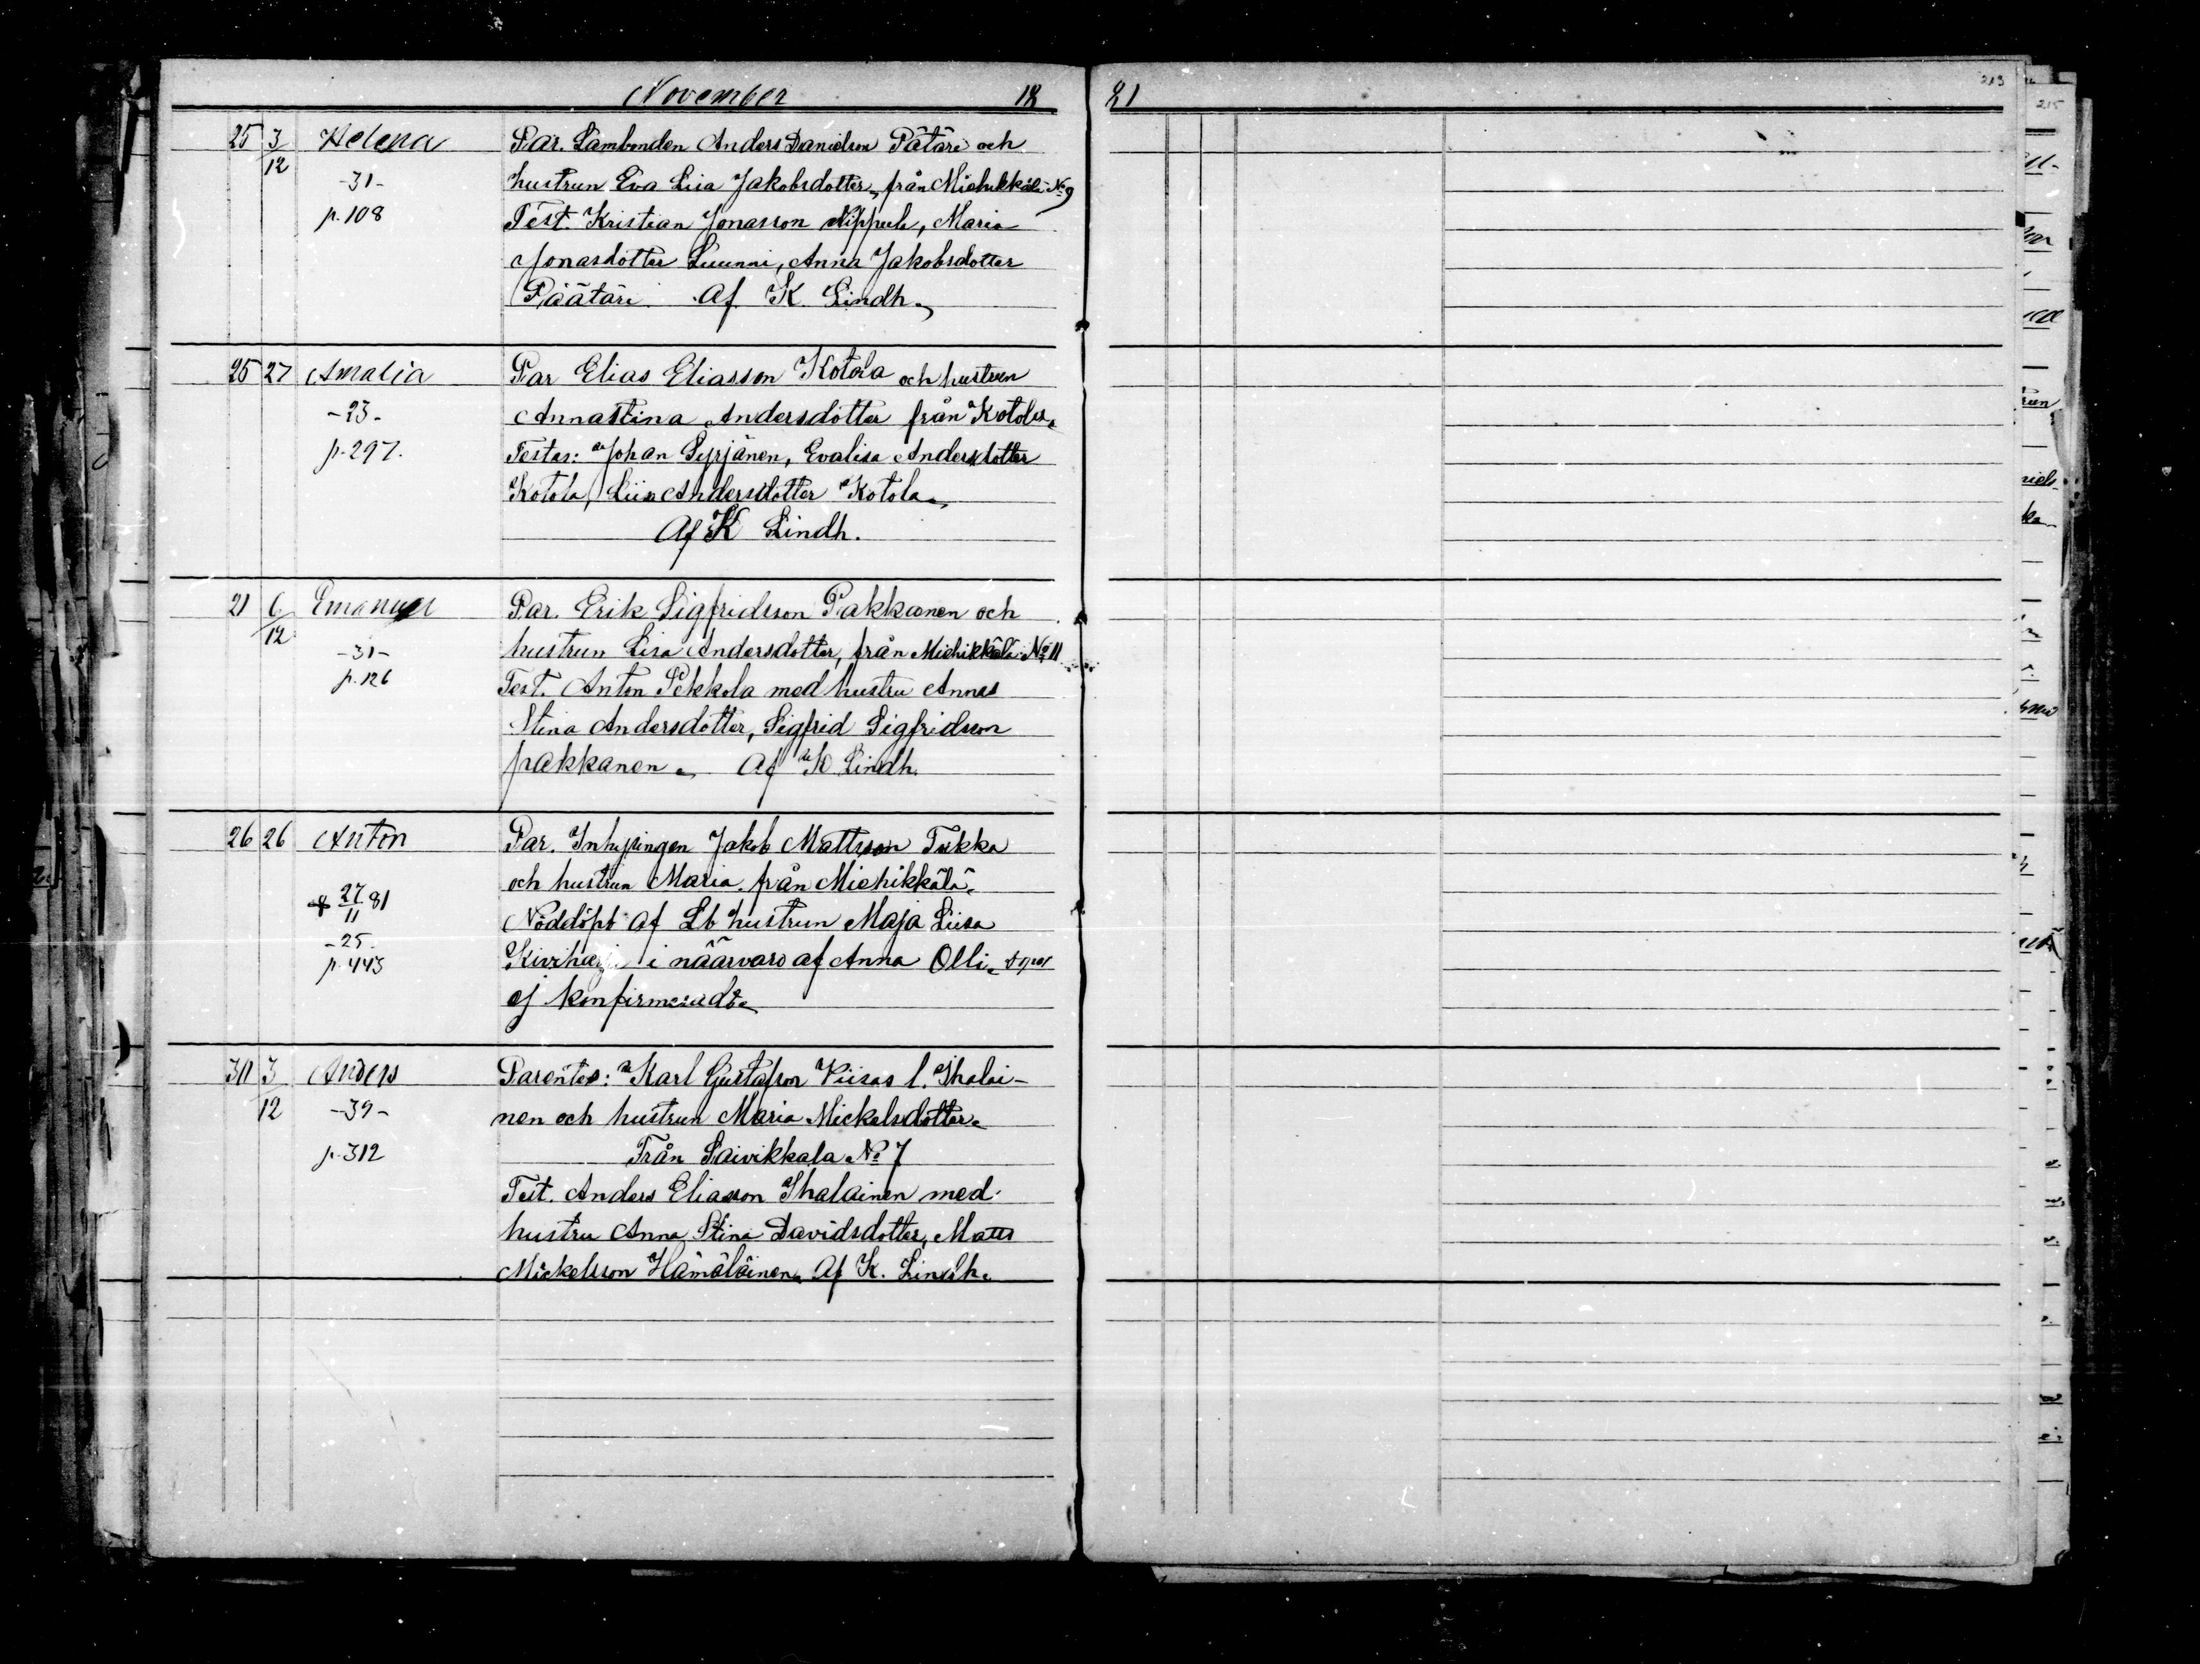 November 18 81
213
215
25 3/12 Helena Par. Lambonden Anders Danielson Pätäri och
-31- hustrun Eva Lisa Jakobsdotter, från Miehikkälä No 9
p. 108 Test. Kristian Jonasson Nippula, Maria
Jonasdotter Luumi, Anna Jakobsdotter
Päätäri. Af K Lindh.
25 27 Amalia Par Elias Eliasson Kotola och hustrun
-23- Annastina Andersdotter från Kotola.
p. 297. Testes: Johan Syrjänen, Evalisa Andersdotter
Kotola, Liisa Andersdotter Kotola.
Af K Lindh.
21 6/12 Emanuel Par. Erik Sigfridsson Pakkanen och
-31- hustrun Lisa Andersdotter, från Miehikkälä No 11
p. 126 Test. Anton Pekkola med hustru Anna
Stina Andersdotter, Sigfrid Sigfridsson
pakkanen. Af K Lindh.
26 26 Anton Par. Inhysingen Jakob Mattsson Tukka
och hustrun Maria från Miehikkälä.
27/11 81 Nöddöpt af Lb hustrun Maja Liisa
-25- Kiviharju i näärvaro af Anna Olli
p. 443 ej konfirmeradt.
30 3/12 Anders Parentes: Karl Gustafson Viisas l. Ihalai-
-39- nen och hustrun Maria Mickelsdotter.
p. 312 Från Saivikkala No 7
Test. Anders Eliasson Ihalainen med
hustru Anna Stina Davidsdotter, Matts
Mickelsson Hämäläinen. Af K. Lindh.